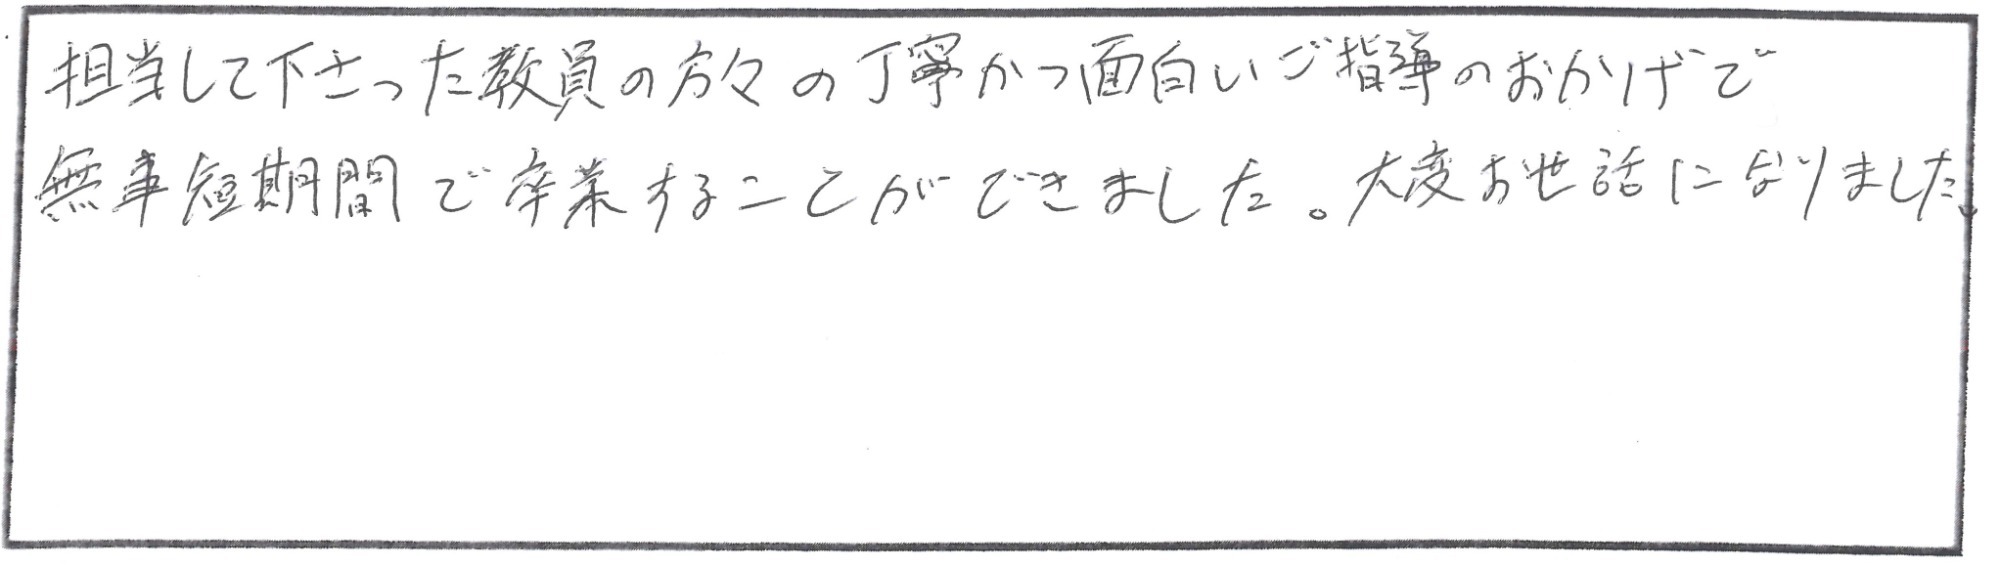 担当して下さった教員の方々の丁寧かつ面白いご指導のおかげで
無事短期間で卒業することができました。大変お世話になりました。